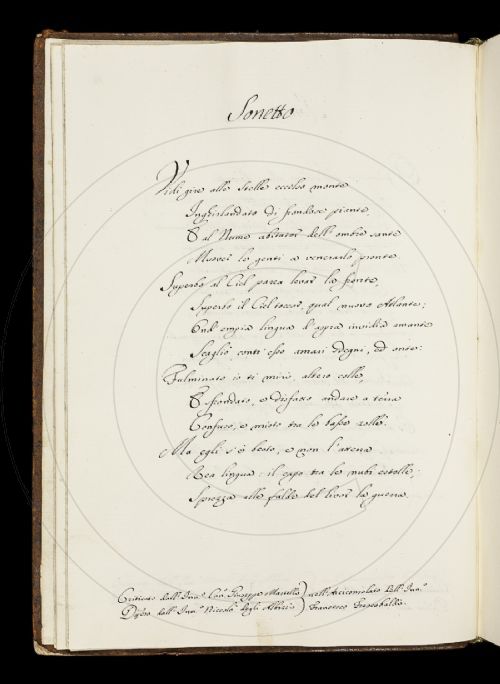 Sonetto
Vidi gire alle Stelle eccelso monte
Inghirlandato di frondose piante,
E al Nume abitator dell' ombre sante
Muover le genti a venerarlo pronte.
Superbo al Ciel parea levar la fronte,
Superbo il Ciel toccar, qual nuovo Atlante;
Ond' empia lingua d' aspra invidia amante
Scagliò contr' esso amari sdegni, ed onte:
Fulminato io ti miro, altero colle,
E sfrondato, e disfatto andare a terra
Confuso, e misto tra le basse zolle.
Ma egli s' è beato, e non l' atterra
Rea lingua: il capo tra le nubi estolle,
Sprezza alle falde del livor la guerra.
Criticato dall' Ill.mo Giuseppe nell' Arciconsolato dell' Ill.mo
Difeso dall' Ill.mo Niccolò degli Albizi Francesco Frescobaldi.